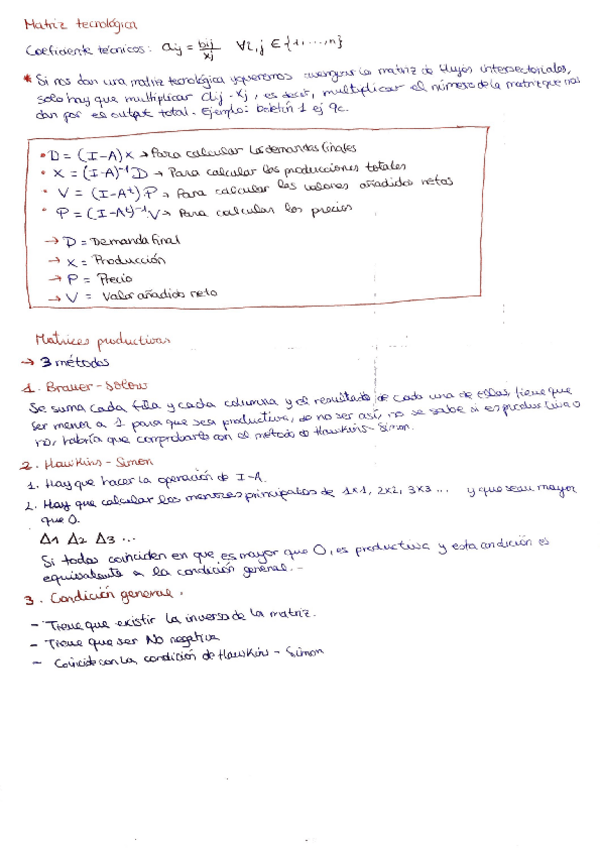 Matriz tecnológica
Coeficiente técnicos: aij = bij/xj ∀i,j ∈ {1,...,n}
* Si nos dan una matriz tecnológica y queremos averiguar la matriz de flujos intersectoriales,
solo hay que multiplicar aij · xj, es decir, multiplicar el número de la matriz que nos
dan por el output total. Ejemplo: boletín 1 ej 9c.
• D = (I-A)x → Para calcular las demandas finales
• X = (I-A)⁻¹ D → Para calcular las producciones totales
• V = (I-Aᵗ) P → Para calcular los valores añadidos netos
• P = (I-Aᵗ)⁻¹ V → Para calcular los precios
→ D = Demanda final
→ X = Producción
→ P = Precio
→ V = Valor añadido neto
Matrices productivas
→ 3 métodos
1. Brauer - Solow
Se suma cada fila y cada columna y el resultado de cada una de ellas tiene que
ser menor a 1 para que sea productiva, de no ser así, no se sabe si es productiva o
no, habría que comprobarlo con el método de Hawkins - Simon.
2. Hawkins - Simon
1. Hay que hacer la operación de I-A.
2. Hay que calcular los menores principales de 1x1, 2x2, 3x3 ... y que sean mayor
que 0.
Δ1 Δ2 Δ3 ...
Si todos coinciden en que es mayor que 0, es productiva y esta condición es
equivalente a la condición general. -
3. Condición general.
- Tiene que existir la inversa de la matriz.
- Tiene que ser No negativa
- Coincide con la condición de Hawkins - Simon